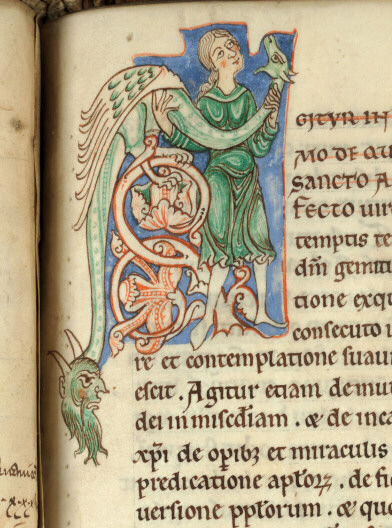 GITVR IN
MO DE QU
SANCTO A
FECTO uir
temptis te
dm̄ gemitu
tione exq
consecuto u
re et contemplatione suaui
escit . Agitur etiam de mu
dei in misc̄diam . & de inca
xp̄i de opib; et miraculis
predicatione apl̄oꝝ . de fi
uersione pp̄lorum . & que